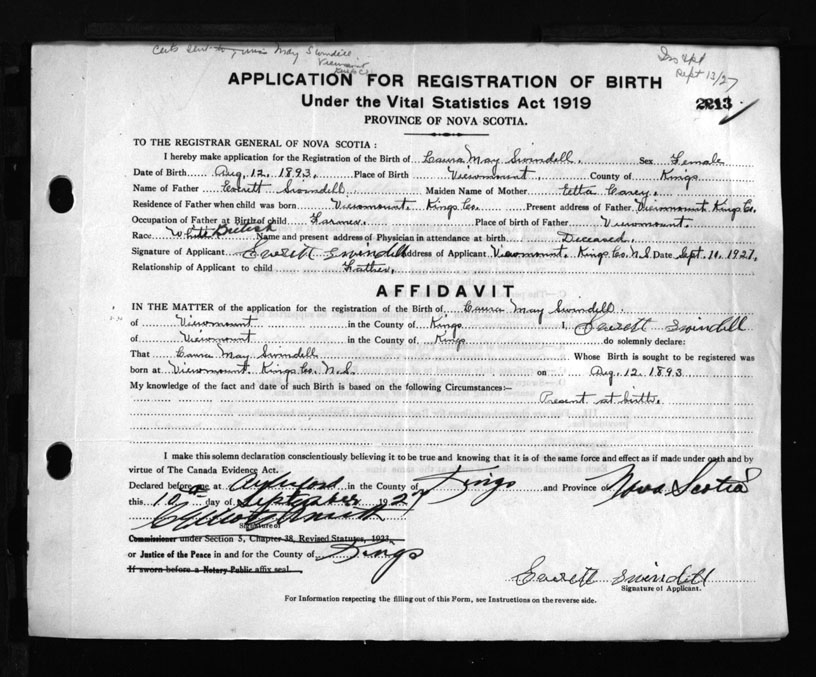 Certs sent to, Miss May Swindell
Viewmount
Kings Co
Sept 13/27
APPLICATION FOR REGISTRATION OF BIRTH
2213
Under the Vital Statistics Act 1919
PROVINCE OF NOVA SCOTIA.
TO THE REGISTRAR GENERAL OF NOVA SCOTIA:
I hereby make application for the Registration of the Birth of Laura May Swindell. Sex Female
Date of Birth Aug. 12. 1893. Place of Birth Viewmount. County of Kings
Name of Father Everett Swindell Maiden Name of Mother Etta Carey.
Residence of Father when child was born Viewmount. Kings Co. Present address of Father Viewmount Kings Co.
Occupation of Father at Birth of child Farmer. Place of birth of Father Viewmount.
Race White British Name and present address of Physician in attendance at birth Deceased.
Signature of Applicant Everett Swindell Address of Applicant Viewmount. Kings Co. N.S Date Sept. 10. 1927.
Relationship of Applicant to child Father.
AFFIDAVIT
IN THE MATTER of the application for the registration of the Birth of Laura May Swindell.
of Viewmount in the County of Kings I, Everett Swindell
of Viewmount in the County of Kings do solemnly declare:
That Laura May Swindell Whose Birth is sought to be registered was
born at Viewmount. Kings Co. N.S. on Aug. 12. 1893
My knowledge of the fact and date of such Birth is based on the following Circumstances:—
Present at birth.
I make this solemn declaration conscientiously believing it to be true and knowing that it is of the same force and effect as if made under oath and by
virtue of The Canada Evidence Act.
Declared before me at Aylesford in the County of Kings and Province of Nova Scotia
this 10th day of September 1927
Signature of
Commissioner under Section 5, Chapter 38, Revised Statutes, 1923
or Justice of the Peace in and for the County of Kings
If sworn before a Notary Public affix seal.
Everett Swindell
Signature of Applicant.
For Information respecting the filling out of this Form, see Instructions on the reverse side.